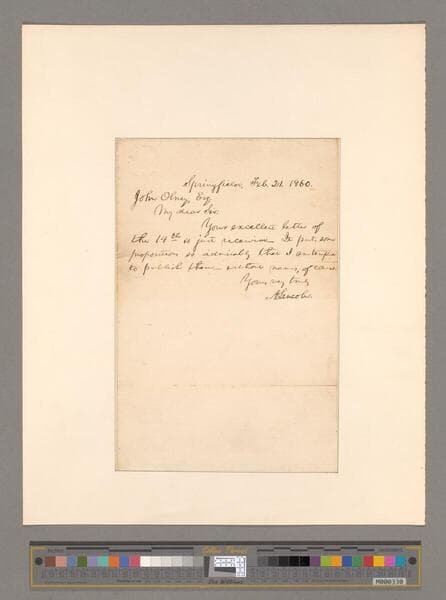 Springfield, Feb. 21. 1860.
John Olney, Esq
My dear Sir
Your excellent letter of
the 14th is just received. It puts some
propositions so admirably that I am tempted
to publish them without name, of course.
Yours very truly
A. Lincoln.
M000330